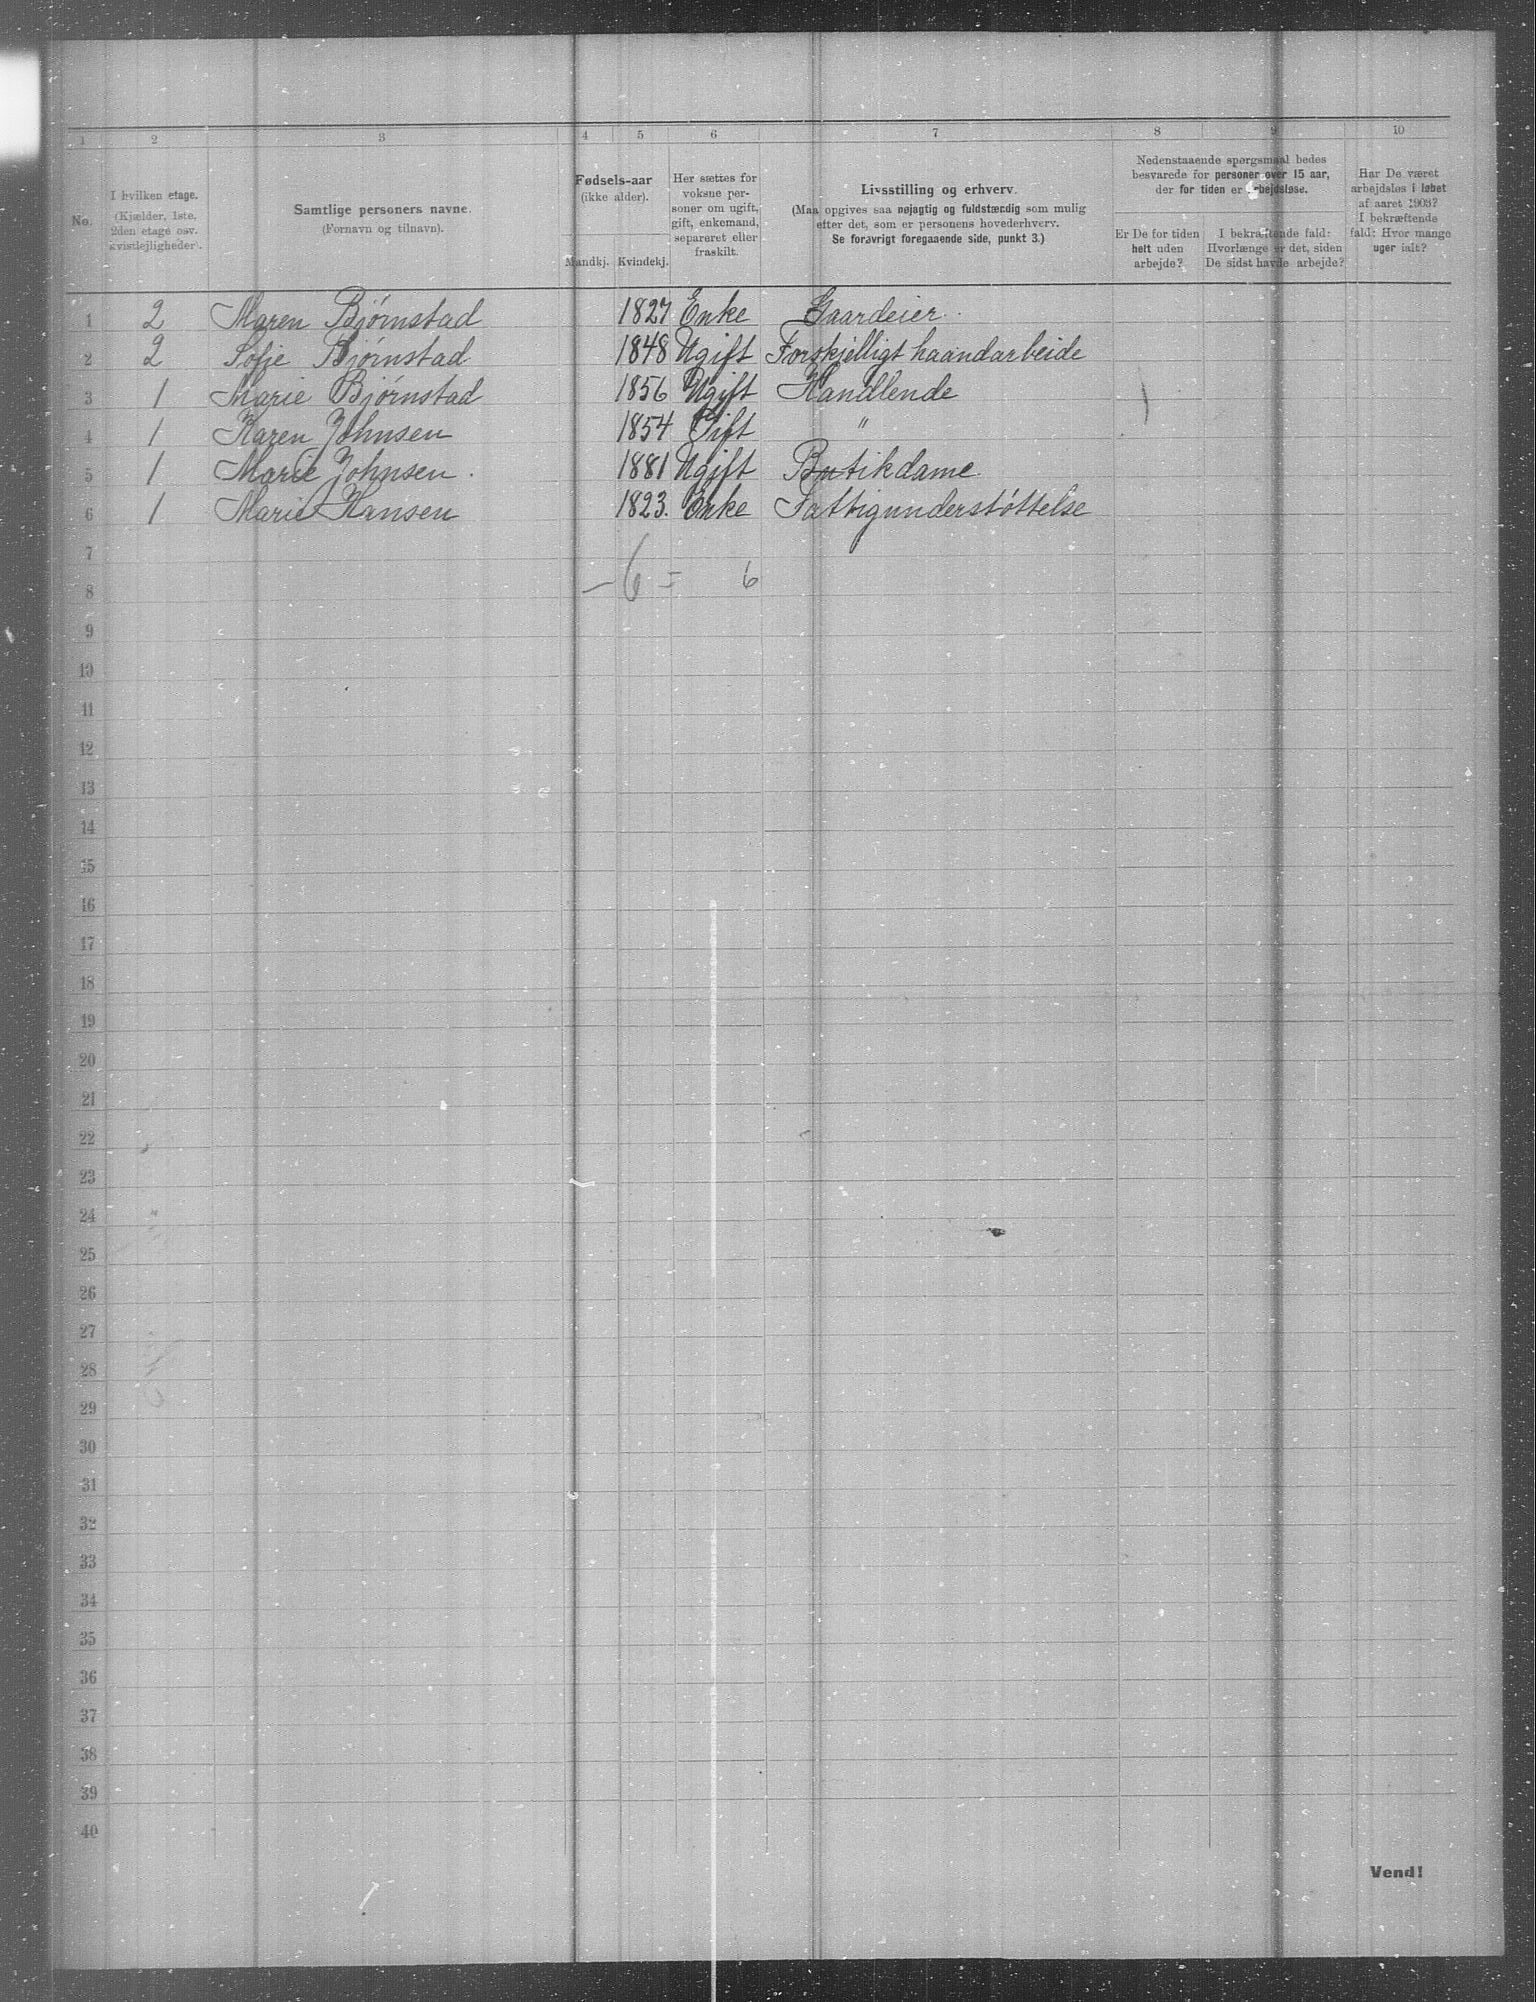 1 2 3 4 5 6 7 8 9 10
No.
I hvilken etage.
(Kjælder, 1ste, 2den etage osv. kvistlejligheder).
Samtlige personers navne.
(Fornavn og tilnavn).
Fødsels-aar
(ikke alder).
Mandkj. Kvindekj.
Her sættes for voksne per-
soner om ugift, gift, enkemand, separeret eller fraskilt.
Livsstilling og erhverv.
(Maa opgives saa nøjagtig og fuldstændig som mulig
efter det, som er personens hovederhverv.
Se forøvrigt foregaaende side, punkt 3.)
Nedenstaaende spørgsmaal bedes
besvarede for personer over 15 aar,
der for tiden er arbejdsløse.
Er De for tiden
helt uden
arbejde?
I bekræftende fald:
Hvorlænge er det, siden
De sidst havde arbejde?
Har De været
arbejdsløs i løbet
af aaret 1903?
I bekræftende
fald: Hvor mange
uger ialt?
1 2 Maren Bjørnstad 1827 Enke Gaardeier.
2 2 Sofie Bjørnstad 1848 Ugift Forskjelligt haandarbeide
3 1 Marie Bjørnstad 1856 Ugift Handlende
4 1 Karen Johnsen 1854 Gift "
5 1 Marie Johnsen. 1881 Ugift Butikdame
6 1 Marie Hansen 1823. Enke Fattigunderstøttelse
7
8 – 6 = 6
9
10
11
12
13
14
15
16
17
18
19
20
21
22
23
24
25
26
27
28
29
30
31
32
33
34
35
36
37
38
39
40
Vend!